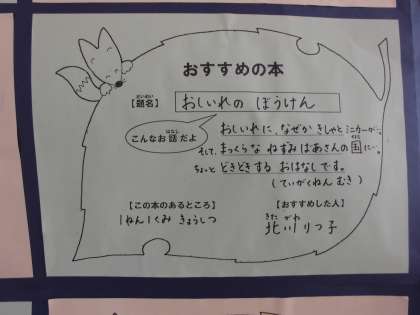 おすすめの本
だいめい
【題名】 おしいれの ぼうけん
はなし
こんなお話だよ
おしいれに、なぜか きしゃと ミニカーが…。
そして、まっくらな ねずみばあさんの 国に…。
くに
ちょっと どきどきする おはなしです。
(ていがくねん むき)
【この本のあるところ】
1ねん1くみ きょうしつ
【おすすめした人】
きた がわ
北川 りつ子